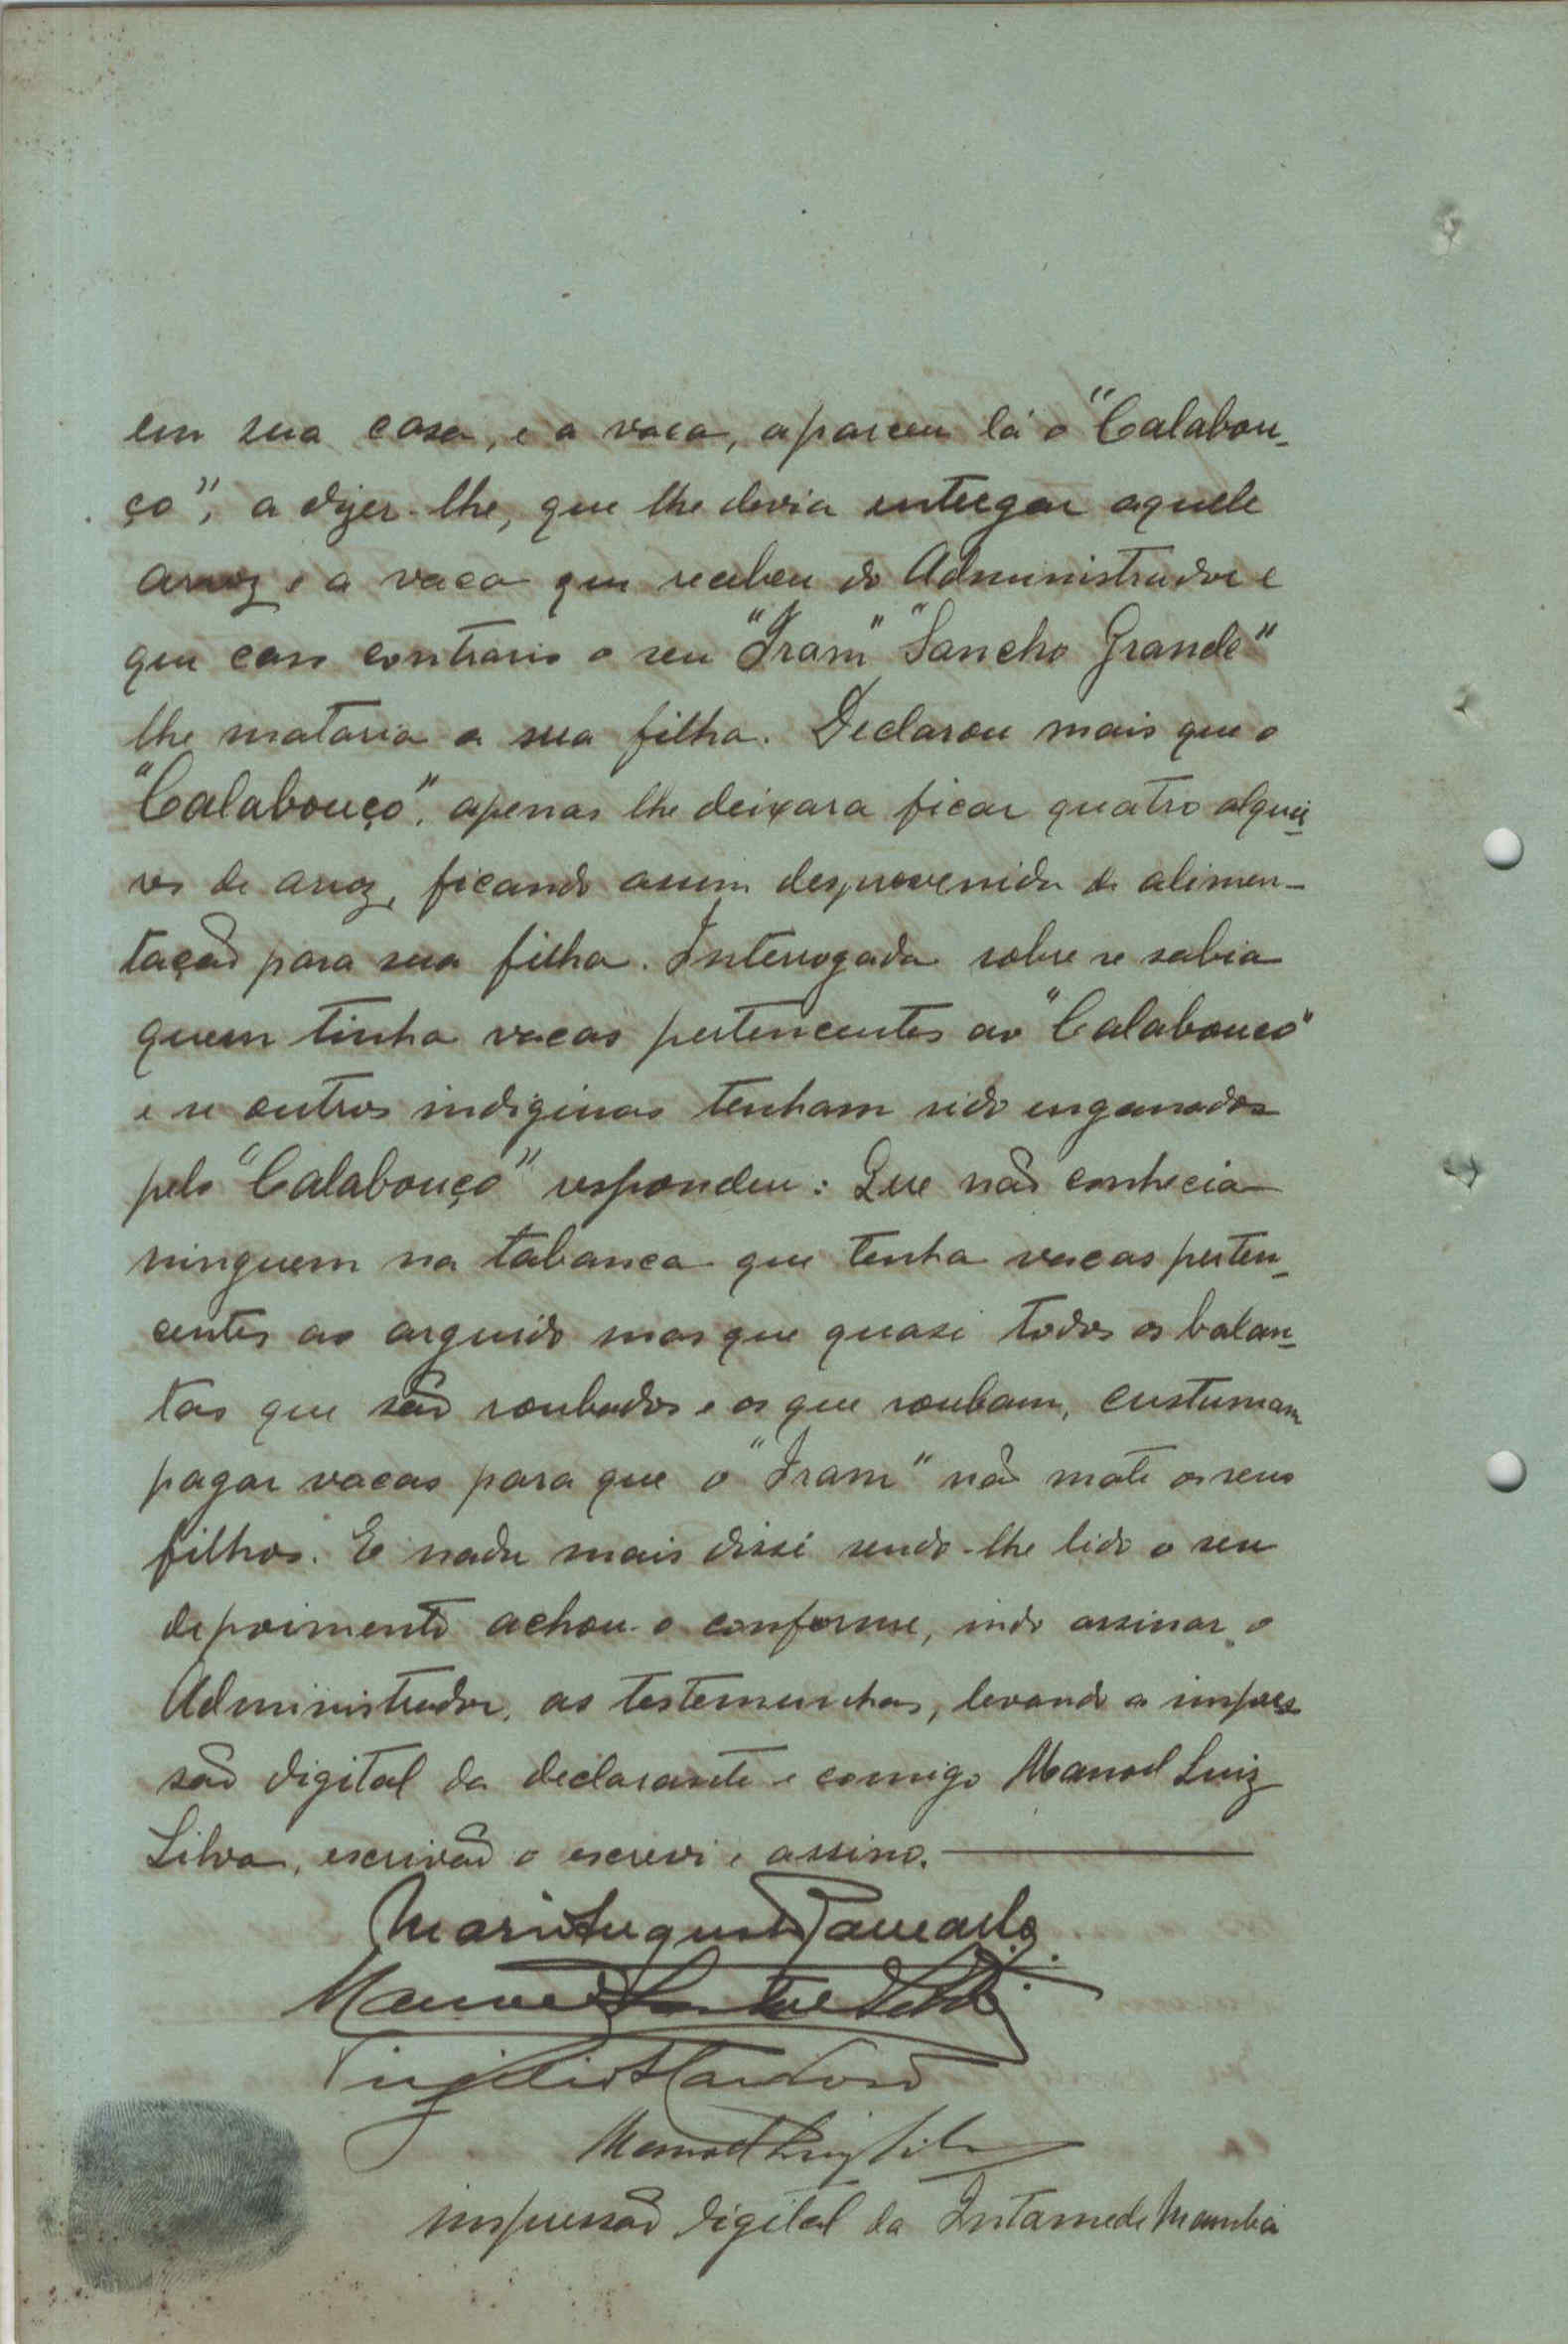 em sua casa, e a vaca, apareceu lá o "Calabou-
ço", a dizer-lhe, que lhe devia entregar aquele
arroz e a vaca que recebeu do Administrador e
que caso contrario o seu "Iram" "Sancho Grande"
lhe mataria a sua filha. Declarou mais que o
"Calabouço", apenas lhe deixara ficar quatro alquei
res de arroz, ficando assim desprovenida de alimen-
tação para sua filha. Interrogada sobre se sabia
quem tinha vacas pertencentes ao "Calabouço"
e se outros indiginas tenham sido enganados
pelo "Calabouço" respondeu: Que não conhecia
ninguem na tabanca que tenha vacas perten-
centes ao arguido mas que quasi todos os balan-
tas que são roubados e os que roubam, custumam
pagar vacas para que o "Iram" não mate os seus
filhos. E nada mais disse sendo-lhe lido o seu
depoimento achou-o conforme, indo assinar o
Administrador, as testemunhas, levando a impres
são digital da declarante e comigo Manoel Luiz
Silva, escrivão o escrevi e assino.
Mario Augusto
Manoel
Manoel Luiz Silva
impressão digital da